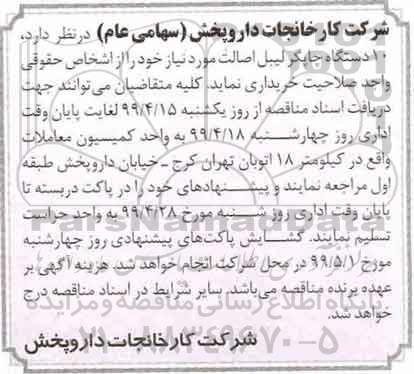 شرکت کارخانجات داروپخش (سهامی عام) درنظر دارد،
۱ دستگاه چاپگر لیبل اصالت مورد نیاز خود را از اشخاص حقوقی
واجد صلاحیت خریداری نماید. کلیه متقاضیان می توانند جهت
دریافت اسناد مناقصه از روز یکشنبه ۹۹/۴/۱۵ لغایت پایان وقت
اداری روز چهارشنبه ۹۹/۴/۱۸ به واحد کمیسیون معاملات
واقع در کیلومتر ۱۸ اتوبان تهران کرج ـ خیابان داروپخش طبقه
اول مراجعه نمایند و پیشنهادهای خود را در پاکت دربسته تا
پایان وقت اداری روز شنبه مورخ ۹۹/۴/۲۸ به واحد حراست
تسلیم نمایند. گشایش پاکت‌های پیشنهادی روز چهارشنبه
مورخ ۹۹/۵/۱ در محل شرکت انجام خواهد شد. هزینه آگهی بر
عهده برنده مناقصه می‌باشد. سایر شرایط در اسناد مناقصه درج
خواهد شد.
شرکت کارخانجات داروپخش
ParsNamadData
پایگاه اطلاع رسانی مناقصه و مزایده
۰۲۱-۸۸۳۴۹۶۷۰-۵